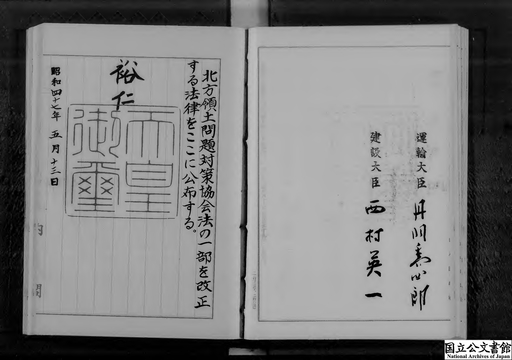 運輸大臣 丹羽喬四郎
建設大臣 西村英一
北方領土問題対策協会法の一部を改正
する法律をここに公布する。
裕仁
天皇
御璽
昭和四十七年 五月十三日
国立公文書館
National Archives of Japan